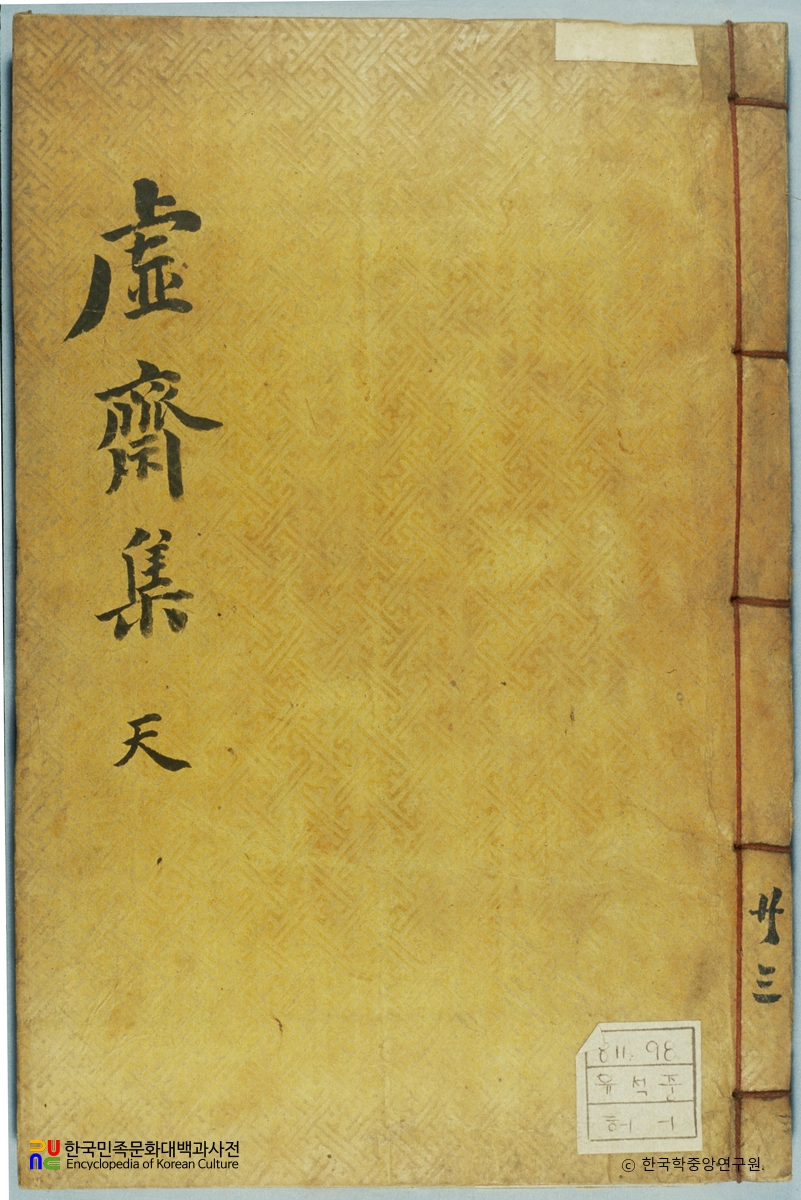 虛
齋
集
天
共三
유석준
한국민족문화대백과사전
Encyclopedia of Korean Culture
© 한국학중앙연구원.